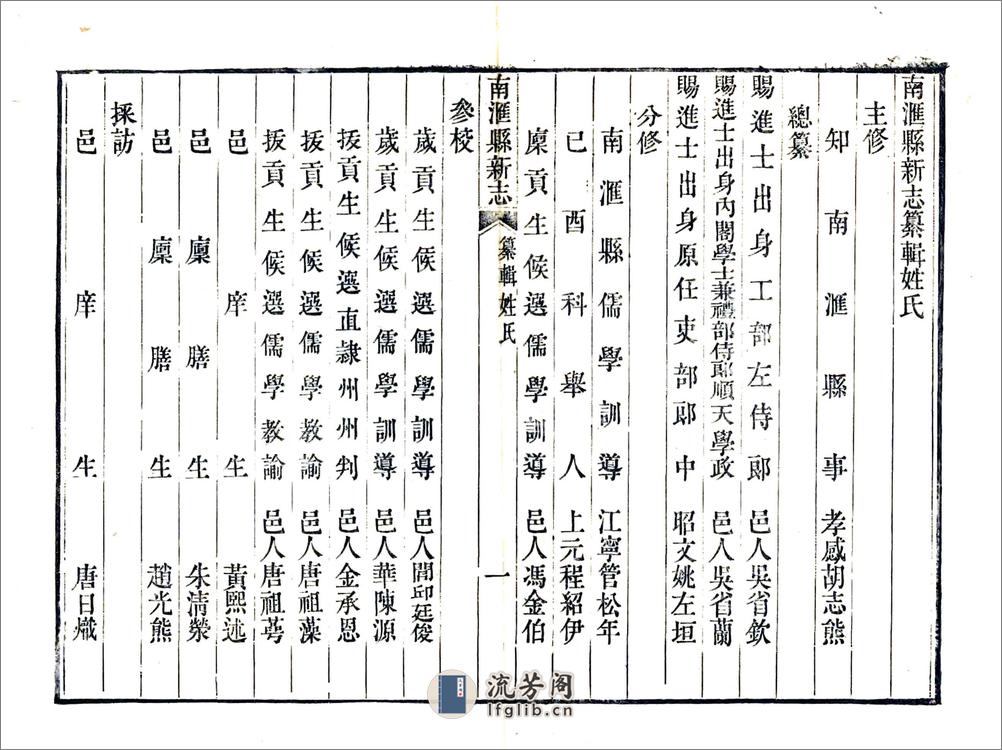 南滙縣新志纂輯姓氏
主修
知南滙縣事 孝感胡志熊
總纂
賜進士出身工部左侍郎 邑人吳省欽
賜進士出身內閣學士兼禮部侍郎順天學政 邑人吳省蘭
賜進士出身原任吏部郎中 昭文姚左垣
分修
南滙縣儒學訓導 江寧管松年
己酉科舉人 上元程紹伊
廩貢生候選儒學訓導 邑人馮金伯
南滙縣新志 纂輯姓氏 一
參校
歲貢生候選儒學訓導 邑人閭邱廷俊
歲貢生候選儒學訓導 邑人華陳源
拔貢生候選直隸州州判 邑人金承恩
拔貢生候選儒學教諭 邑人唐祖藻
拔貢生候選儒學教諭 邑人唐祖蕚
邑庠生 黃熙述
邑廩膳生 朱清榮
邑廩膳生 趙光熊
採訪
邑庠生 唐日熾
流芳阁
lfglib.cn